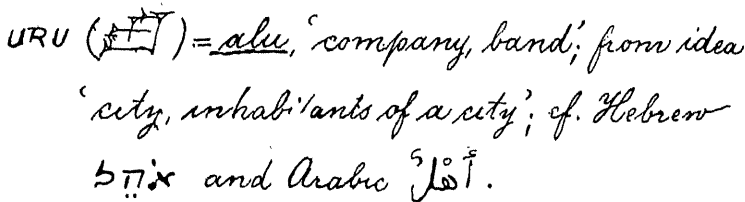 URU (𒌷) = alu, ‘company, band’; from idea
‘city, inhabitants of a city’; cf. Hebrew
אֹהֵל and Arabic أَهْلٌ.